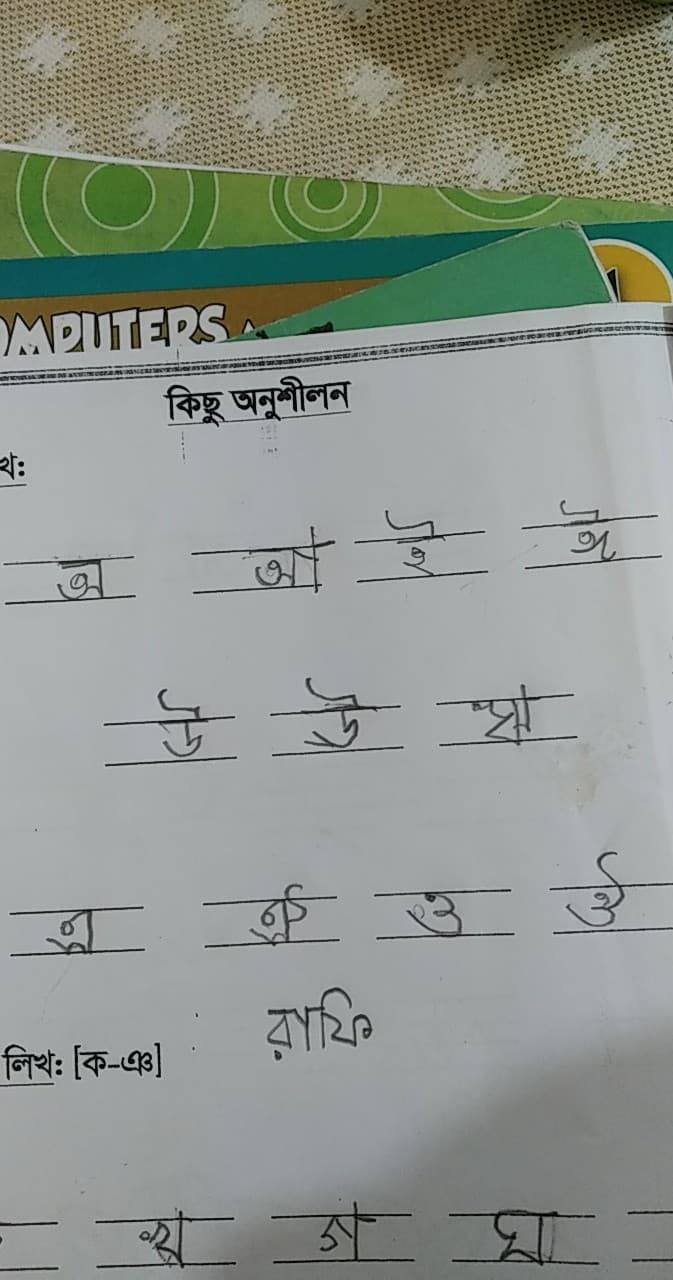 COMPUTERS
কিছু অনুশীলন
খ:
অ আ ই ঈ
উ ঊ ঋ
এ ঐ ও ঔ
রাফি
লিখ: [ক-ঞ]
খ গ ঘ